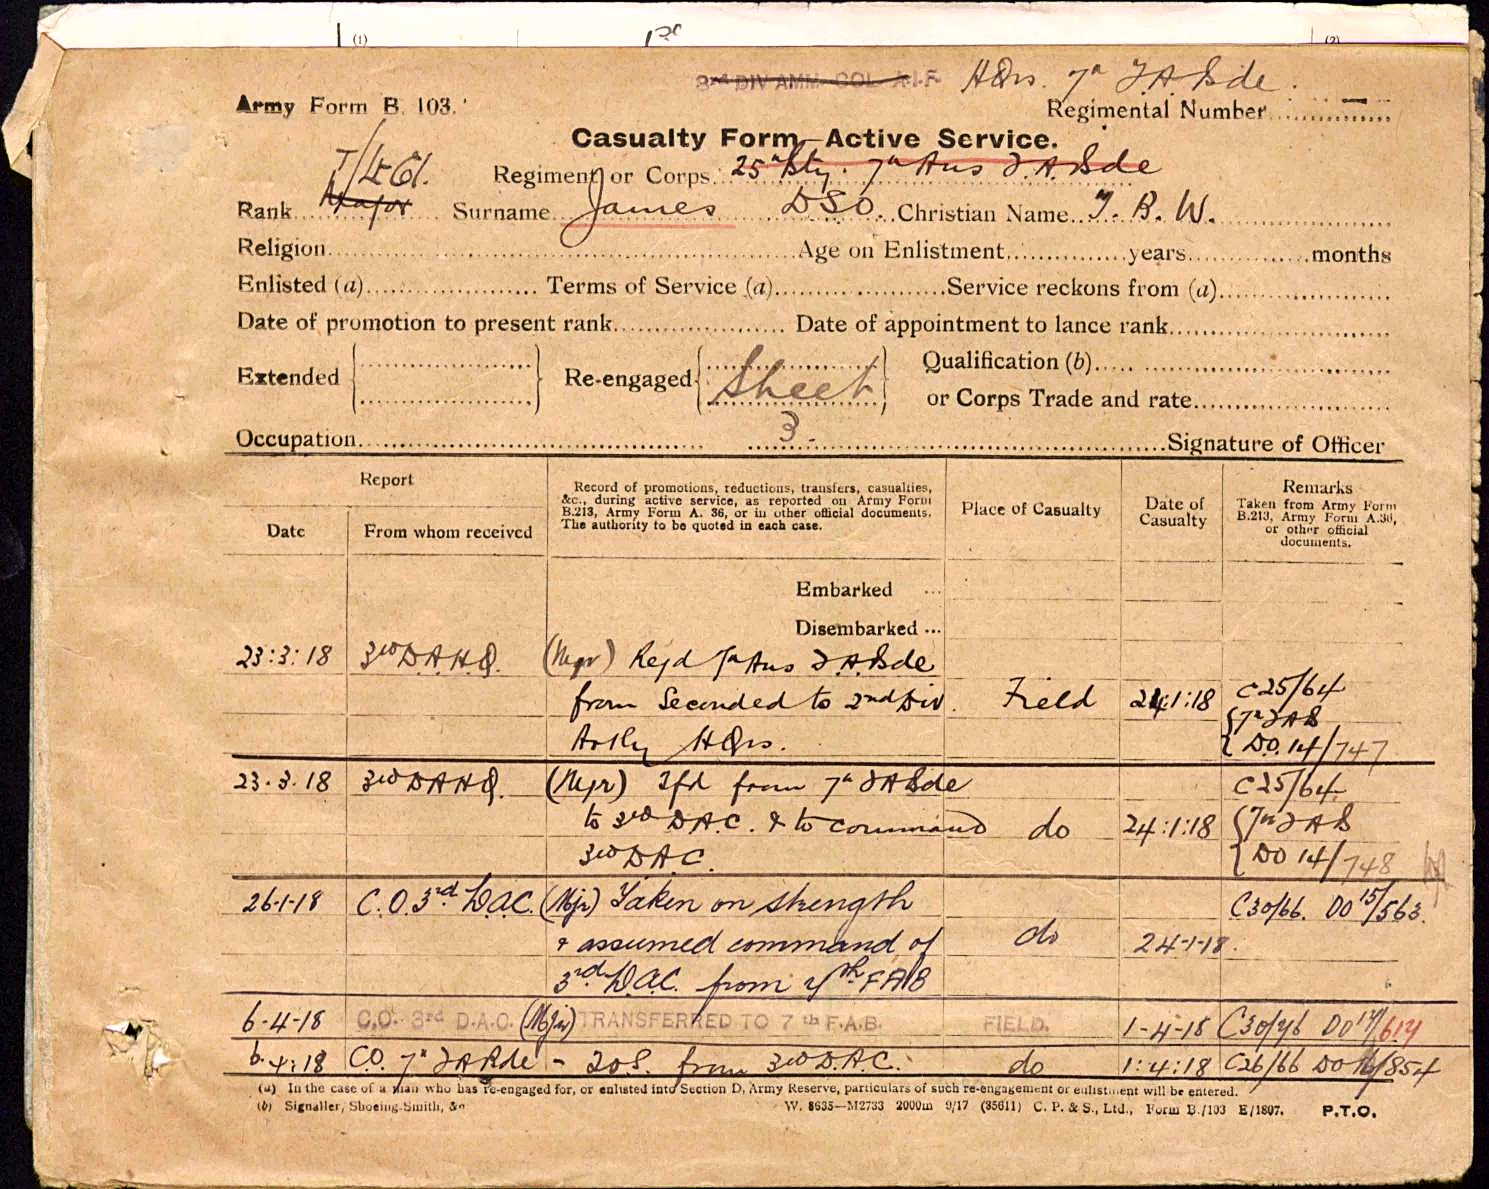 (1) (2)
3rd DIV AMM. COL. A.I.F. HQrs. 7th F.A.Bde.
Army Form B. 103. Regimental Number
Casualty Form—Active Service.
T/Lt Col. Regiment or Corps 25th Bty. 7th Aus F.A.Bde
Rank Major Surname James DSO. Christian Name T. B. W.
Religion Age on Enlistment years months
Enlisted (a) Terms of Service (a) Service reckons from (a)
Date of promotion to present rank Date of appointment to lance rank
Extended Re-engaged Sheet Qualification (b)
or Corps Trade and rate
Occupation 3. Signature of Officer
Report
Date From whom received
Record of promotions, reductions, transfers, casualties,
&c., during active service, as reported on Army Form
B.213, Army Form A. 36, or in other official documents.
The authority to be quoted in each case.
Place of Casualty
Date of
Casualty
Remarks
Taken from Army Form
B.213, Army Form A.36,
or other official
documents.
Embarked ...
Disembarked ...
23:3:18 3rd D.A.H.Q. (Mjr) Rejd 7th Aus F.A.Bde
from Seconded to 2nd Div Field 24:1:18 C25/64
Artly HQrs. 7th FAB
DO. 14/747
23.3.18 3rd DAHQ. (Mjr) Tfd from 7th FABde C25/64
to 3rd D.A.C. & to command do 24:1:18 7th FAB
3rd DAC. DO 14/748
26-1-18 C.O. 3rd D.A.C. (Mjr) Taken on strength C30/66. DO 15/563.
& assumed command of do 24-1-18.
3rd D.A.C. from 7th F.A.B
6-4-18 C.O. 3rd D.A.C. (Mjr) TRANSFERRED TO 7th F.A.B. FIELD. 1-4-18 C30/76 DO 17/614
6.4.18 CO. 7th FABde - TOS. from 3rd D.A.C. do 1:4:18 C26/66 DO 16/854
(a) In the case of a man who has re-engaged for, or enlisted into Section D, Army Reserve, particulars of such re-engagement or enlistment will be entered.
(b) Signaller, Shoeing-Smith, &c W. 8635—M2733 2000m 9/17 (35611) C. P. & S., Ltd., Form B./103 E/1807. P.T.O.